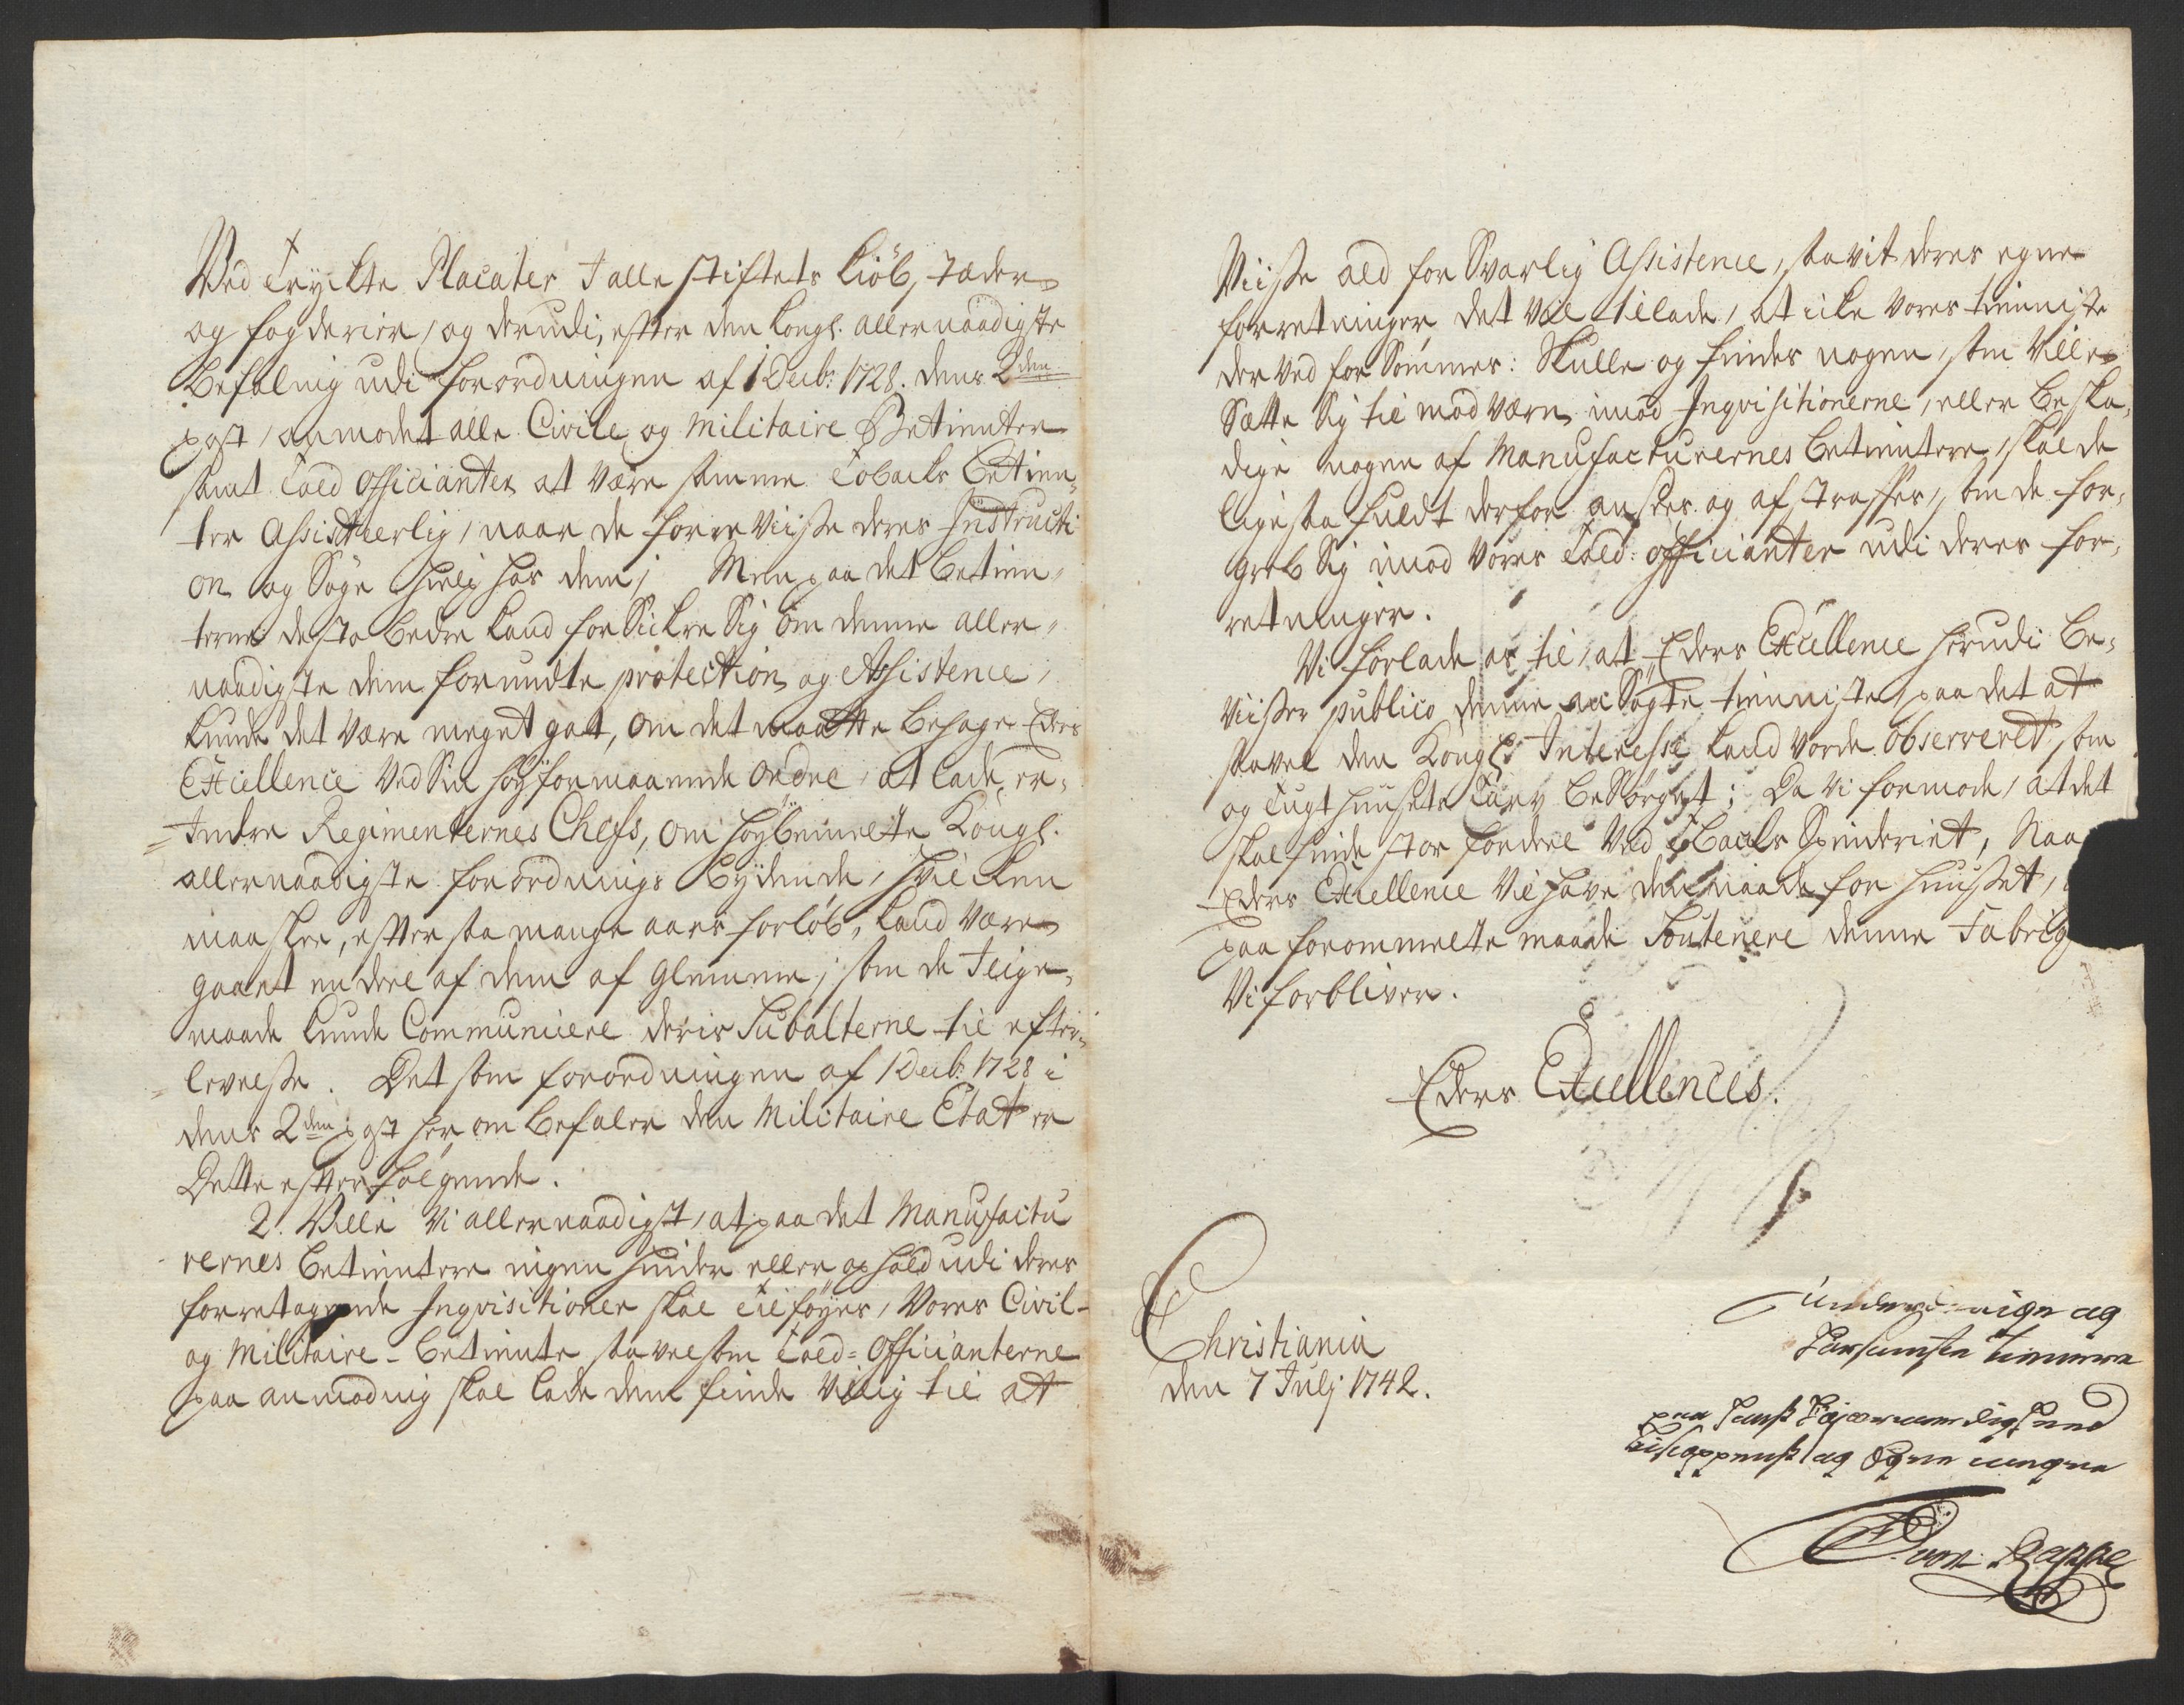 Ved Tryckte Placater I alle Stiftets Kiöb, stæder
og fogderier, og derudi, efter den Kongl. allernaadigste
Befaling udi Forordningen af 1 Decbr: 1728. dens 2den
post, anmodet alle Civile og Militaire Betienter
samt Told Officianter at være samme Tobacks Betien,,
ter Assisteerlig, naar de forreviisse deres Instructi
on og Söge hielp hos dem; Men paa det Betien,,
terne desto bedre kand forsickre Sig om denne aller,,
naadigste dem forundte protection og Assistence,
kunde det være meget got, om det maatte behage Eders
Excellence ved Sin höyformaaende Ordre, at lade er,,
=Indre Regimenternes Chefs, om höybemelte Kongl.
allernaadigste forordnings Bydende, hvilcken
maaskee, efter saa mange aars forlöb, kand være
gaaet en deel af dem af Glemme; som de Ilige,,
maade kunde Communicere deris Subalterne til efter,,
levelse. Det som forordningen af 1 Decbr: 1728 i
dens 2den post her om Befaler den Militaire Etat er
Dette efterfölgende.
2. Ville Vi allernaadigst, at paa det Manufactu
rernes Betientere ingen hinder eller ophold udi deres
foretagende Inqvisitioner skal tilföyes, Vores Civil-
og Militaire-Betiente saavelsom Told=Officianterne
paa anmodning skal lade dem finde Villig til at
Viisse ald forsvarlig Assistence, saavit deres egne
forretninger det vil tillade, at icke Vores tienniste
derved forsömmes: Skulle og findes nogen, som ville
Sætte Sig til modværn imod Inqvisitionerne, eller beska,,
dige nogen af Manufacturernes Betientere, skal de
ligesaa fuldt derfor ansees og afstraffes, som de for,,
greb Sig imod Vores Told=Officianter udi deres for,,
retninger.
Vi forlade os til, at Eders Excellence herudi be,,
viiser publico denne ansögte tienniste, paa det at
saavel den Kongl: Interesse kand vorde observeret, som
og Tugthuusets Tarv besörget; Da vi formode, at det
skal finde stor fordeel ved Tobacks Spinderiet, Naar
Eders Excellence Vil have den naade for huuset,
paa forommelte maade Soutenere denne Fabriq
Vi forbliver.
Eders Excellences.
Christiania
den 7 Julj 1742.
underdanige og
Horsamste tiennere
paa hans Höjærværdighed
Bischoppens og Egne vegne
von Rappe